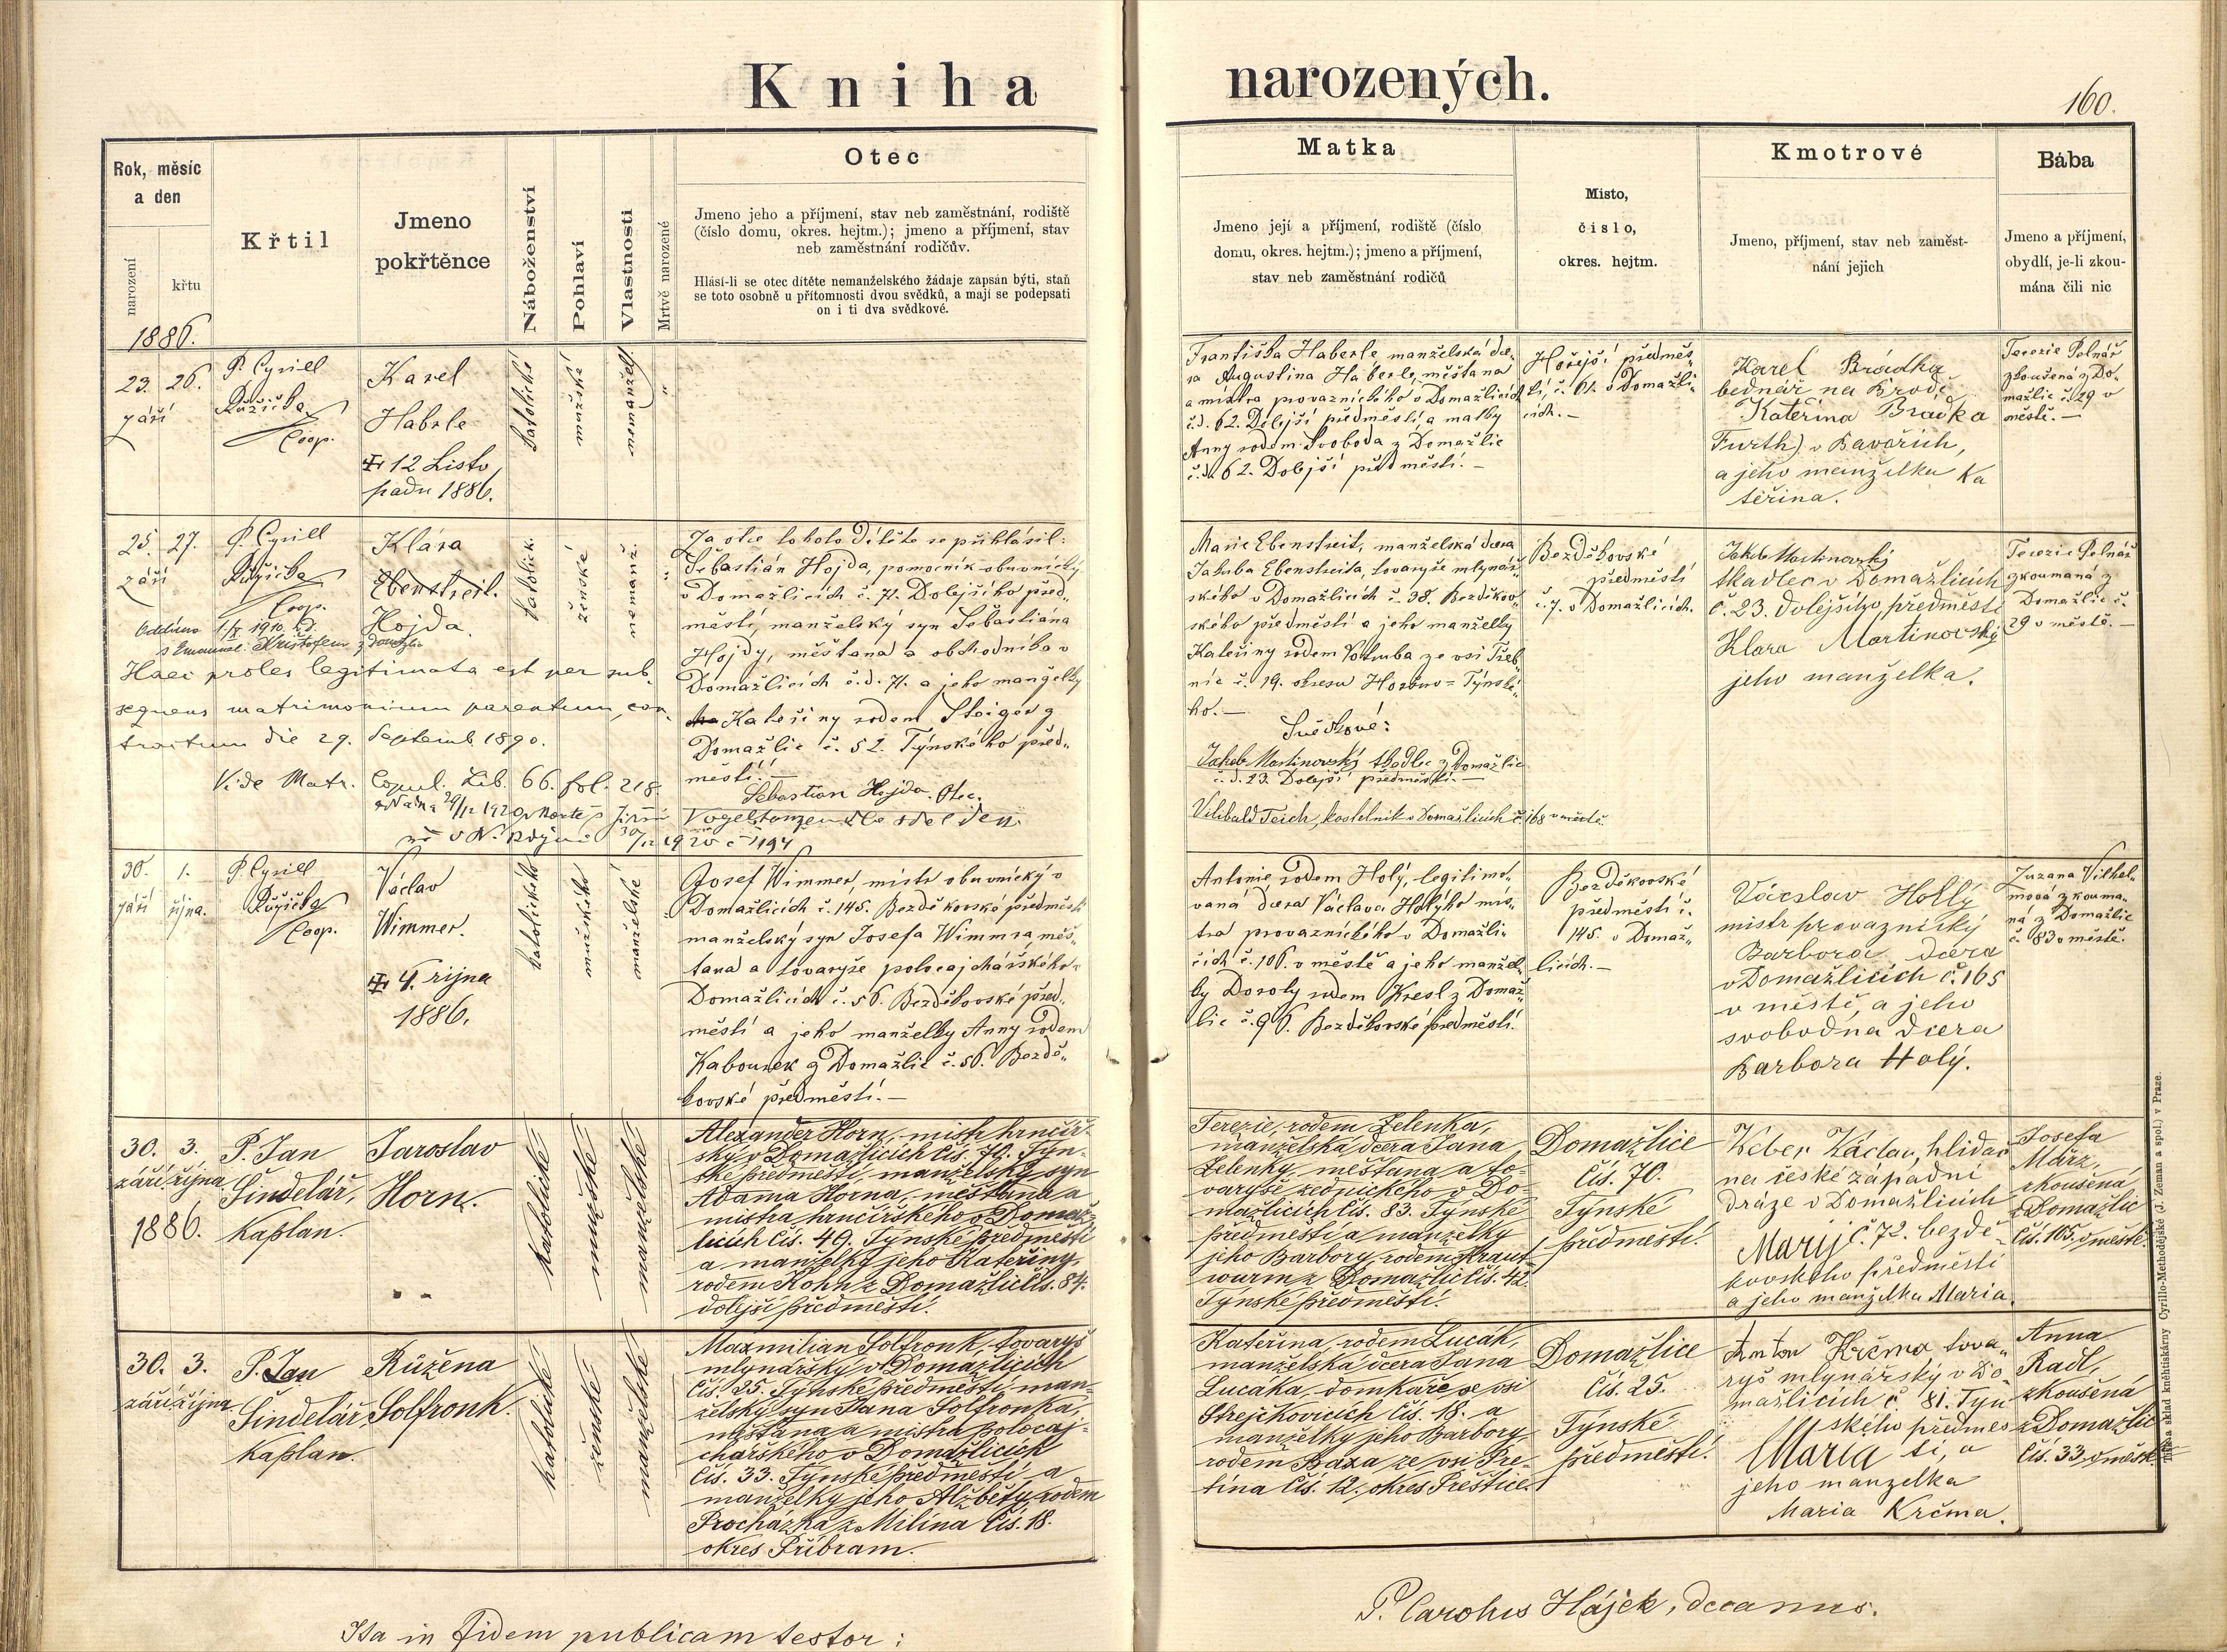 Kniha narozených.
160.
Rok, měsíc
a den
narození
křtu
Křtil
Jmeno
pokřtěnce
Náboženství
Pohlaví
Vlastnosti
Mrtvě narozené
Otec
Jmeno jeho a příjmení, stav neb zaměstnání, rodiště
(číslo domu, okres. hejtm.); jmeno a příjmení, stav
neb zaměstnání rodičův.
Hlásí-li se otec dítěte nemanželského žádaje zapsán býti, staň
se toto osobně u přítomnosti dvou svědků, a mají se podepsati
on i ti dva svědkové.
Matka
Jmeno její a příjmení, rodiště (číslo
domu, okres. hejtm.); jmeno a příjmení,
stav neb zaměstnání rodičů
Místo,
číslo,
okres. hejtm.
Kmotrové
Jmeno, příjmení, stav neb zaměst-
nání jejich
Bába
Jmeno a příjmení,
obydlí, je-li zkou-
mána čili nic
1886.
23. 26.
září
P. Cyrill
Růžička
Coop.
Karel
Haberle
12 Listo
padu 1886.
katolické
mužské
nemanžel.
Františka Haberle manželská dce-
ra Augustina Haberle, měštana
a mistra provaznického v Domažlicích
č.d. 62. Dolejší předměstí, a matky
Anny rodem Svoboda z Domažlic
č.d. 62. Dolejší předměstí. –
Hořejší předměs-
tí, č. 61. v Domažli-
cích. –
Karel Brádka
bednář na Brodě
Kateřina Bradka
Furth) v Bavořích,
a jeho manželka Ka
teřina.
Terezie Polnář
zkoušená z Do-
mažlic č. 29 v
městě. –
25. 27.
září
P. Cyrill
Růžička
Coop.
Klára
Ebenstreit.
Hojda.
katolick.
ženské
nemanž.
Oddána 1/X 1910
s Emanuel. Krištofem z Domažlic
Haec proles legitimata est per sub-
sequens matrimonium parentum, con-
tractum die 29. Septemb 1890.
Vide Matr. Copul. Lib. 66. fol. 218.
Za otce tohoto dítěte se přihlásil:
Šebastián Hojda, pomocník obuvnický
v Domažlicích č. 71. Dolejšího před-
městí, manželský syn Šebastiána
Hojdy, měštana a obchodníka v
Domažlicích č.d. 71. a jeho manželky
Kateřiny rodem Steiger z
Domažlic č. 52. Týnského před-
městí. –
Sebastian Hojda. Otec.
Marie Ebenstreit, manželská dcera
Jakuba Ebenstreita, tovaryše mlynář-
ského v Domažlicích č. 38. Bezděkov-
ského předměstí a jeho manželky
Kateřiny rodem Votruba ze vsi Třeb-
nic č. 19. okresu Horšův=Týnské-
ho. –
Svědkové:
Jakub Martinovský tkadlec z Domažlic
č.d. 23. Dolejší předměstí. –
Vilibald Teich, kostelník v Domažlicích č. 168 v městě.
Bezděkovské
předměstí
č. 7. v Domažlicích.
Jakub Martinovský
tkadlec v Domažlicích
č. 23. dolejšího předměstí
Klara Martinovský
jeho manželka.
Terezie Polnář
zkoumaná z
Domažlic č.
29 v městě. –
30. 1.
září října.
P. Cyrill
Růžička
Coop.
Václav
Wimmer.
4. října
1886.
katolického
mužského
manželské
Josef Wimmer, mistr obuvnický v
Domažlicích č. 145. Bezděkovské předměstí
manželský syn Josefa Wimmra, měš-
tana a tovaryše polocajchářského v
Domažlicích č. 56. Bezděkovské před-
městí a jeho manželky Anny rodem
Kabourek z Domažlic č. 56. Bezdě-
kovské předměstí. –
Antonie rodem Holý, legitimo-
vaná dcera Václava Holýho mis-
tra provaznického v Domažli-
cích č. 106. v městě a jeho manžel-
ky Doroty rodem Kresl z Domaž-
lic č. 96. Bezděkovské předměstí.
Bezděkovské
předměstí č.
145. v Domaž-
licích. –
Václav Hollý
mistr provaznický
Barbora dcera
v Domažlicích č. 165
v městě, a jeho
svobodna dcera
Barbora Holý.
Zuzana Vilhel-
mová zkouma-
ná z Domažlic
č. 83 v městě.
30. 3.
září října
1886.
P. Jan
Šindelář,
kaplan.
Jaroslav
Horn.
katolické
mužské
manželské
Alexander Horn, mistr hrnčíř-
ský v Domažlicích čís. 70. Týn-
ské předměstí, manželský syn
Adama Horna, měštana a
mistra hrnčířského v Domaž-
licích čís. 49. Týnské předměstí
a manželky jeho Kateřiny
rodem Kohn z Domažlic čís. 84.
dolejší předměstí.
Terezie, rodem Zelenka,
manželská dcera Jana
Zelenky, měštana a to-
varyše zednického v Do-
mažlicích čís. 83. Týnské
předměstí a manželky
jeho Barbory, rodem Kraut-
wurm z Domažlic čís. 42.
Týnské předměstí.
Domažlice
čís. 70.
Týnské
předměstí.
Weber Václav, hlídač
na české západní
dráze v Domažlicích
Marij č. 72. bezdě-
kovského předměstí
a jeho manželka Maria.
Josefa
März,
zkoušená
z Domažlic
čís. 165. v městě.
30. 3.
září října
P. Jan
Šindelář
kaplan.
Růžena
Solfronk.
katolické
ženské
manželské
Maxmilian Solfronk, tovaryš
mlynářský v Domažlicích
čís. 25. Týnské předměstí, man-
želský syn Jana Solfronka,
měštana a mistra polocaj-
chářského v Domažlicích
čís. 33. Týnské předměstí a
manželky jeho Alžběty, rodem
Procházka z Milína čís. 18.
okres Příbram.
Kateřina, rodem Lucák,
manželská dcera Jana
Lucáka, domkáře ve vsi
Strejčkovicích čís. 18. a
manželky jeho Barbory
rodem Baxa ze vsi Pře-
tína čís. 12. okres Přeštice.
Domažlice
čís. 25.
Týnské
předměstí.
Anton Krčma tova-
ryš mlynářský v Do-
mažlicích č. 81. Týn
ského předměs
Maria tí, a
jeho manzelka
Maria Krčma.
Anna
Radl,
zkoušená
z Domažlic
čís. 33. v městě.
Cyrillo-Methodějské (J. Zeman a spol.) v Praze.
Ita in fidem publicam testor:
P. Carolus Hájek, decanus.